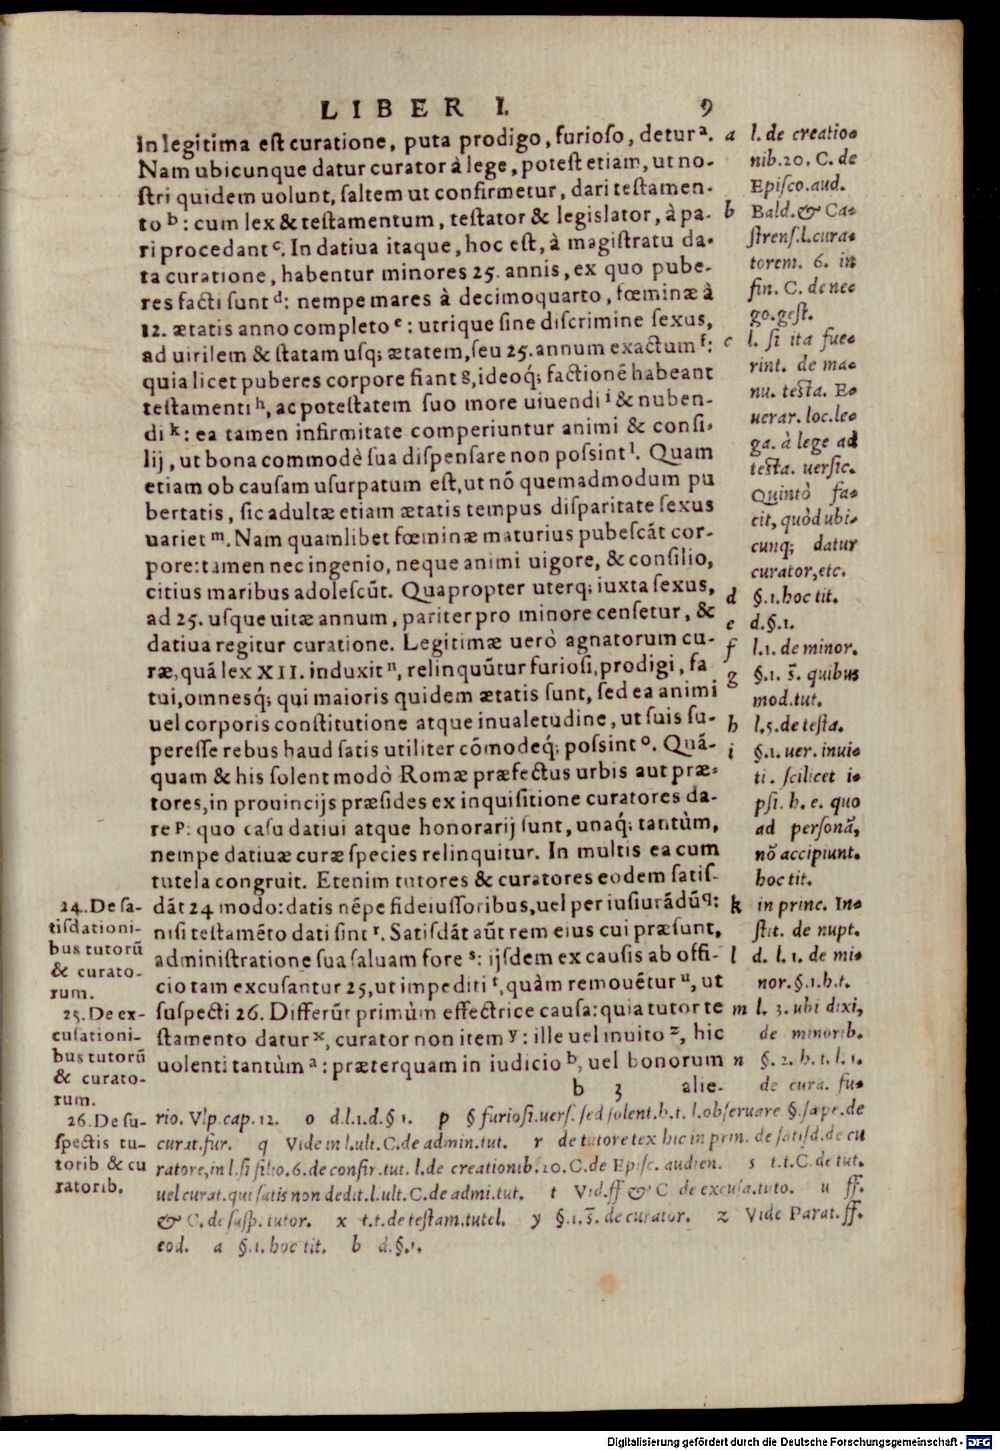 LIBER I. 9
in legitima est curatione, puta prodigo, furioso, detur a.
Nam ubicunque datur curator à lege, potest etiam, ut no-
stri quidem uolunt, saltem ut confirmetur, dari testamen-
to b: cum lex & testamentum, testator & legislator, à pa-
ri procedant c. In datiua itaque, hoc est, à magistratu da-
ta curatione, habentur minores 25. annis, ex quo pube-
res facti sunt d: nempe mares à decimoquarto, fœminæ à
12. ætatis anno completo e: utrique sine discrimine sexus,
ad uirilem & statam usq; ætatem, seu 25. annum exactum f:
quia licet puberes corpore fiant g, ideoq; factionē habeant
testamenti h, ac potestatem suo more uiuendi i & nuben-
di k: ea tamen infirmitate comperiuntur animi & consi-
lij, ut bona commodè sua dispensare non possint l. Quam
etiam ob causam usurpatum est, ut nō quemadmodum pu
bertatis, sic adultæ etiam ætatis tempus disparitate sexus
uariet m. Nam quamlibet fœminæ maturius pubescāt cor-
pore: tamen nec ingenio, neque animi uigore, & consilio,
citius maribus adolescūt. Quapropter uterq; iuxta sexus,
ad 25. usque uitæ annum, pariter pro minore censetur, &
datiua regitur curatione. Legitimæ uerò agnatorum cu-
ræ, quā lex XII. induxit n, relinquūtur furiosi, prodigi, fa
tui, omnesq; qui maioris quidem ætatis sunt, sed ea animi
uel corporis constitutione atque inualetudine, ut suis su-
peresse rebus haud satis utiliter cōmodeq; possint o. Quā-
quam & his solent modò Romæ præfectus urbis aut præ-
tores, in prouincijs præsides ex inquisitione curatores da-
re p: quo casu datiui atque honorarij sunt, unaq; tantùm,
nempe datiuæ curæ species relinquitur. In multis ea cum
tutela congruit. Etenim tutores & curatores eodem satis-
dāt 24 modo: datis nēpe fideiussoribus, uel per iusiurādū q:
nisi testamēto dati sint r. Satisdāt aūt rem eius cui præsunt,
administratione sua saluam fore s: ijsdem ex causis ab offi-
cio tam excusantur 25, ut impediti t, quàm remouētur u, ut
suspecti 26. Differūt primùm effectrice causa: quia tutor te
stamento datur x, curator non item y: ille uel inuito z, hic
uolenti tantùm a: præterquam in iudicio b, uel bonorum
b 3 alie-
24. De sa-
tisdationi-
bus tutorū
& curato-
rum.
25. De ex-
cusationi-
bus tutorū
& curato-
rum.
26. De su-
spectis tu-
torib & cu
ratorib.
a l. de creatio-
nib. 20. C. de
Episco. aud.
b Bald. & Ca-
strens. l. cura-
torem. 6. in
fin. C. de ne-
go. gest.
c l. si ita fue-
rint. de ma-
nu. testa. E-
uerar. loc. le-
ga. à lege ad
testa. uersic.
Quintò fa-
cit, quòd ubi-
cunq; datur
curator, etc.
d §. 1. hoc tit.
e d. §. 1.
f l. 1. de minor.
g §. 1. s̄. quibus
mod. tut.
h l. 5. de testa.
i §. 1. uer. inui-
ti. scilicet i-
psi. h. e. quo
ad personā,
nō accipiunt.
hoc tit.
k in princ. In-
stit. de nupt.
l d. l. 1. de mi-
nor. §. 1. h. t.
m l. 3. ubi dixi,
de minorib.
n §. 2. h. t. l. 1.
de cura. fu-
rio. Vlp. cap. 12. o d. l. 1. d. § 1. p § furiosi. uers. sed solent. h. t. l. obseruare §. sæpe. de
curat. fur. q Vide in l. ult. C. de admin. tut. r de tutore tex hic in prin. de satisd. de cu
ratore, in l. si filio. 6. de confir. tut. l. de creationib. 20. C. de Episc. audien. s t. t. C. de tut.
uel curat. qui satis non dedit. l. ult. C. de admi. tut. t Vid. ff & C de excusa. tuto. u ff.
& C. de susp. tutor. x t. t. de testam. tutel. y §. 1. s̄. de curator. z Vide Parat. ff.
eod. a §. 1. hoc tit. b d. §. 1.
Digitalisierung gefördert durch die Deutsche Forschungsgemeinschaft - DFG